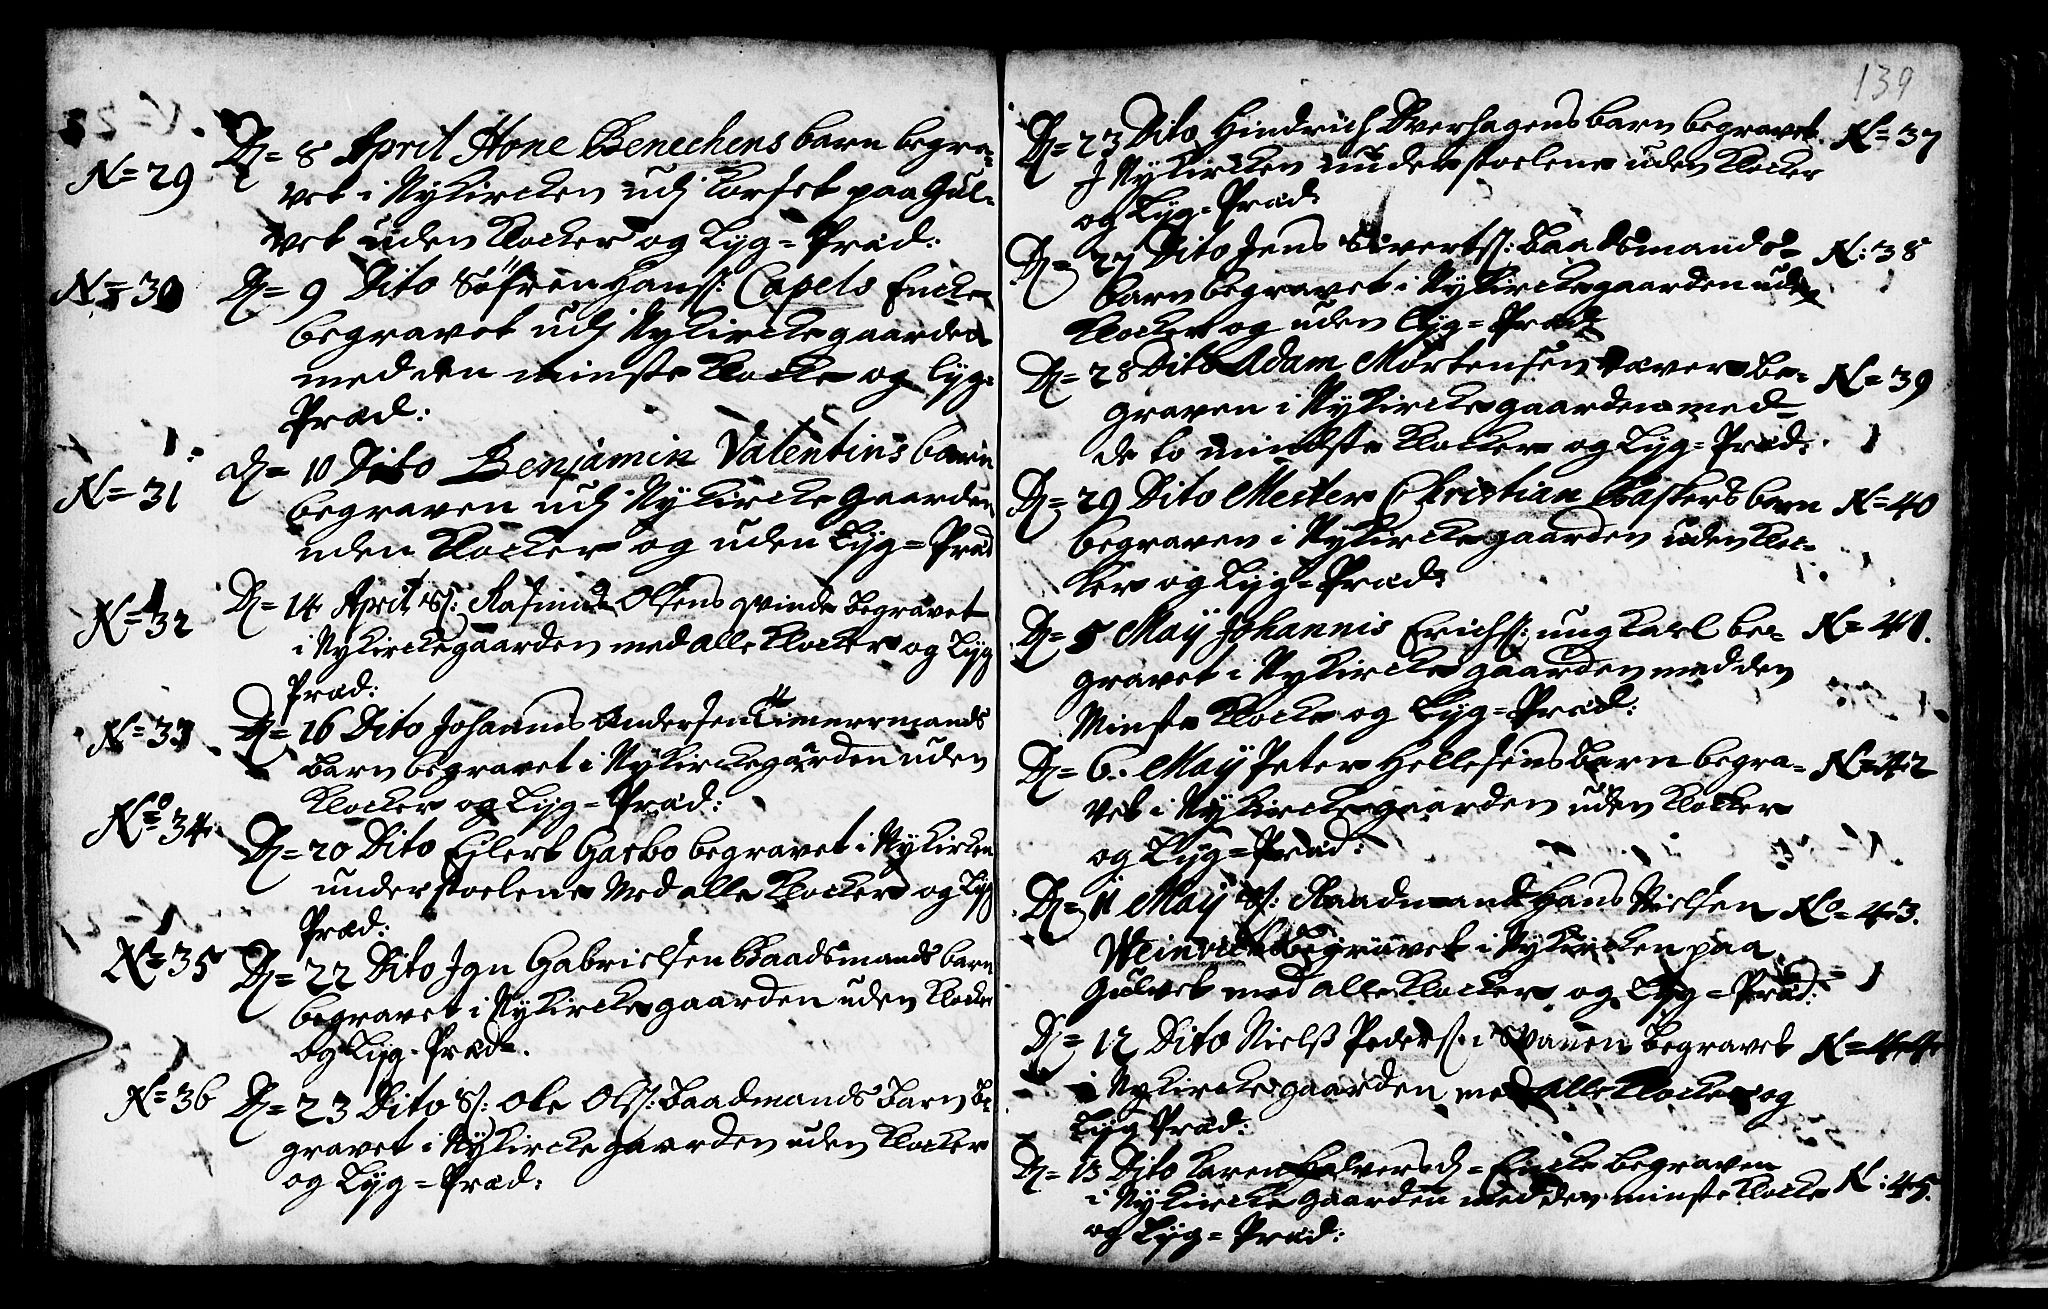 N=29 D= 8 April Hone Benechens barn begra=
vet i Nykircken udj Korset paa Gul=
vet uden Klocker og Lyg=Præd:
N=30 D= 9 Dito Söfren Hanss: Capels Encke
begravet udj Nykirckegaarden
med den minste Klocke og Lyg=
Præd:
N=31 D= 10 Dito Benjamin Valentins barn
begraven udj Nykircke Gaarden
uden Klocker og uden Lyg=Præd
N=32 D= 14 April Sl: Rasmus Olsens qvinde begravet
i Nykirckegaarden med alle Klocker og Lyg
Præd:
N=33 D= 16 Dito Johannes Andersen Timermands
barn begravet i Nykirckegården uden
Klocker og Lyg=Præd:
No=34 D= 20 Dito Eilert Garbo begravet i Nykircken
under stoelene Med alle Klocker og Lyg
Præd:
N=35 D= 22 Dito Jgn Gabrielsen Baadsmands barn
begravet i Nykirckegaarden uden Klocker
og Lyg=Præd=.
N=36 D= 23 Dito Sl: Ole Olss: Baadmands Barn be
gravet i Nykirckegaarden uden Klocker
og Lyg=Præd:
139
D= 23 Dito Hindrich Overhagens barn begravet N=37
J Nykircken under stoelene uden Klocker
og Lyg=Præd:
D= 27 Dito Jens Sivertss: Baadsmands N:38
barn begravet i Nykirckegaarden uden
Klocker og uden Lyg=Præd
D= 28 Dito Adam Mortensen væver be= N=39
graven i Nykirckegaarden med
de to mindste Klocker og Lyg=Præd:
D= 29 Dito Mester Christian Baskers barn N=40
begraven i Nykirckegaarden uden Kloc=
ker og Lyg=Præd:
D= 5 Maÿ Johannis Erichs: ung Karl be= N=41.
gravet i Nykircke gaarden med den
Minste Klocke og Lyg=Præd:
D= 6. Maÿ Peter Hellesens barn begra= N=42
vet i Nykirckegaarden uden Klocker
og Lyg=Præd:
D= 11 Maÿ Sl: Raadmand Hans Nielsen No=43.
Weinvich begravet i Nykircken paa
Gulvet med alle Klocker og Lyg=Præd:
D= 12 Dito Nielss Peders: Svanen begravet N=44
i Nykirckegaarden med alle Klocker og
Lyg Præd:
D= 13 Dito Karen Halversd= Encke begraven
i Nykircke gaarden med den minste Klocke N:45.
og Lyg=Præd: